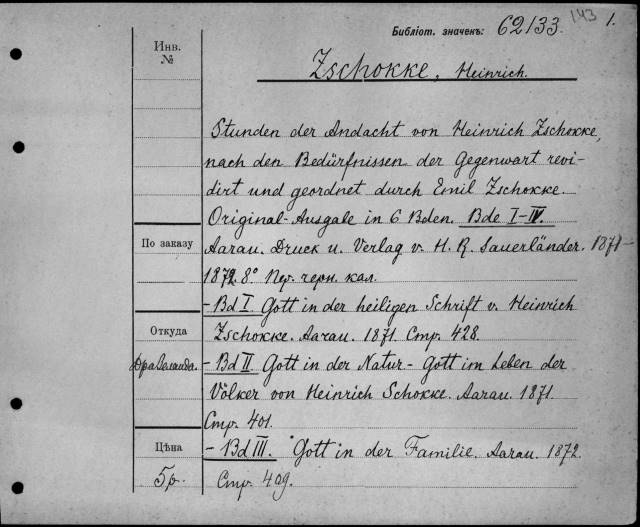 Библіот. значекъ: 62133. 143 1.
Инв. №
Zschokke, Heinrich.
Stunden der Andacht von Heinrich Zschokke,
nach den Bedürfnissen der Gegenwart revi-
dirt und geordnet durch Emil Zschokke.
Original-Ausgabe in 6 Bden. Bde I–IV.
По заказу
Aarau. Druck u. Verlag v. H. R. Sauerländer. 1871–
1872. 8° Пер. черн. кал.
– Bd I Gott in der heiligen Schrift v. Heinrich
Откуда
Zschokke. Aarau. 1871. Стр. 428.
– Bd II Gott in der Natur – Gott im Leben der
Völker von Heinrich Schokke. Aarau. 1871.
Стр. 401.
Цѣна
– Bd III. Gott in der Familie. Aarau. 1872.
5 р.
Стр. 409.